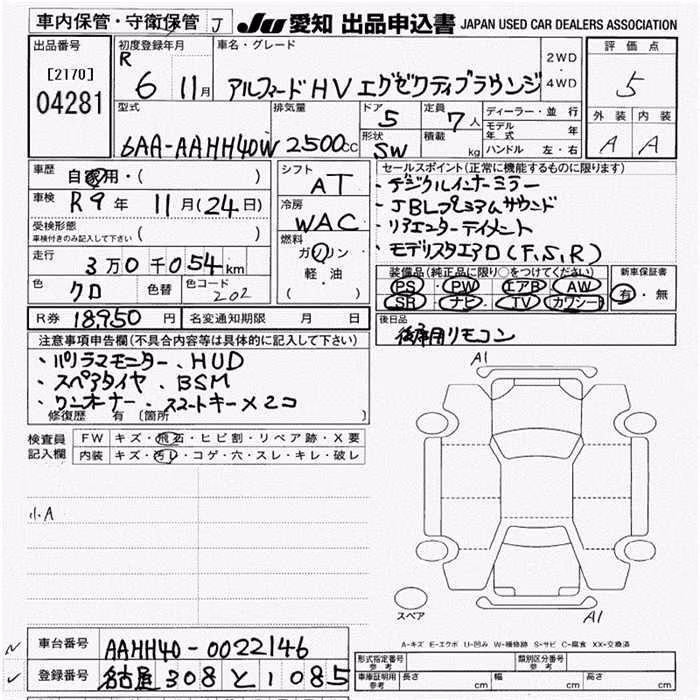 車内保管・守衛保管 J JU 愛知 出品申込書 JAPAN USED CAR DEALERS ASSOCIATION
出品番号 初度登録年月 車名・グレード 2WD ・ 4WD 評価点
[2170] R 6 11月 アルファードHV エグゼクティブラウンジ 5
04281
型式 排気量 ドア 5 定員 7人 ディーラー・並行 外装 内装
6AA-AAHH40W 2500cc 形状 SW 積載 kg モデル年式 年 A A
ハンドル 左・右
車歴 自家用・( ) シフト AT セールスポイント(正常に機能するものに限ります)
車検 R9年 11月(24日) 冷房 WAC ・デジタルインナーミラー
受検形態 ( ) ・JBLプレミアムサウンド
車検付きのみ記入して下さい 燃料 ・リアエンターテイメント
走行 3万0千054km ガソリン ・モデリスタエアロ(F,S,R)
色 クロ 色替 色コード 202 軽・油 ( )
装備品(純正品に限り○をつけてください) 新車保証書
PS・PW・エアB・AW 有・無
SR・ナビ・TV・カワシート
R券 18,950円 名変通知期限 月 日 後日品
後席用リモコン
注意事項申告欄(不具合内容等は具体的に記入して下さい)
・パノラマモニター、HUD
・スペアタイヤ、BSM
・ワンオーナー、スマートキー×2コ
修復歴 有 [箇所 ]
検査員 FW キズ・飛石・ヒビ割・リペア跡・X要
記入欄 内装 キズ・汚レ・コゲ・穴・スレ・キレ・破レ
A1
小A
スペア
A1
A-キズ E-エクボ U-凹み W-補修跡 S-サビ C-腐食 XX-交換済
車台番号 AAHH40-0022146
登録番号 名古屋 308 と 1085
形式指定番号 参考 類別区分番号 参考
車庫証明用 参考 長さ cm 幅 cm 高さ cm